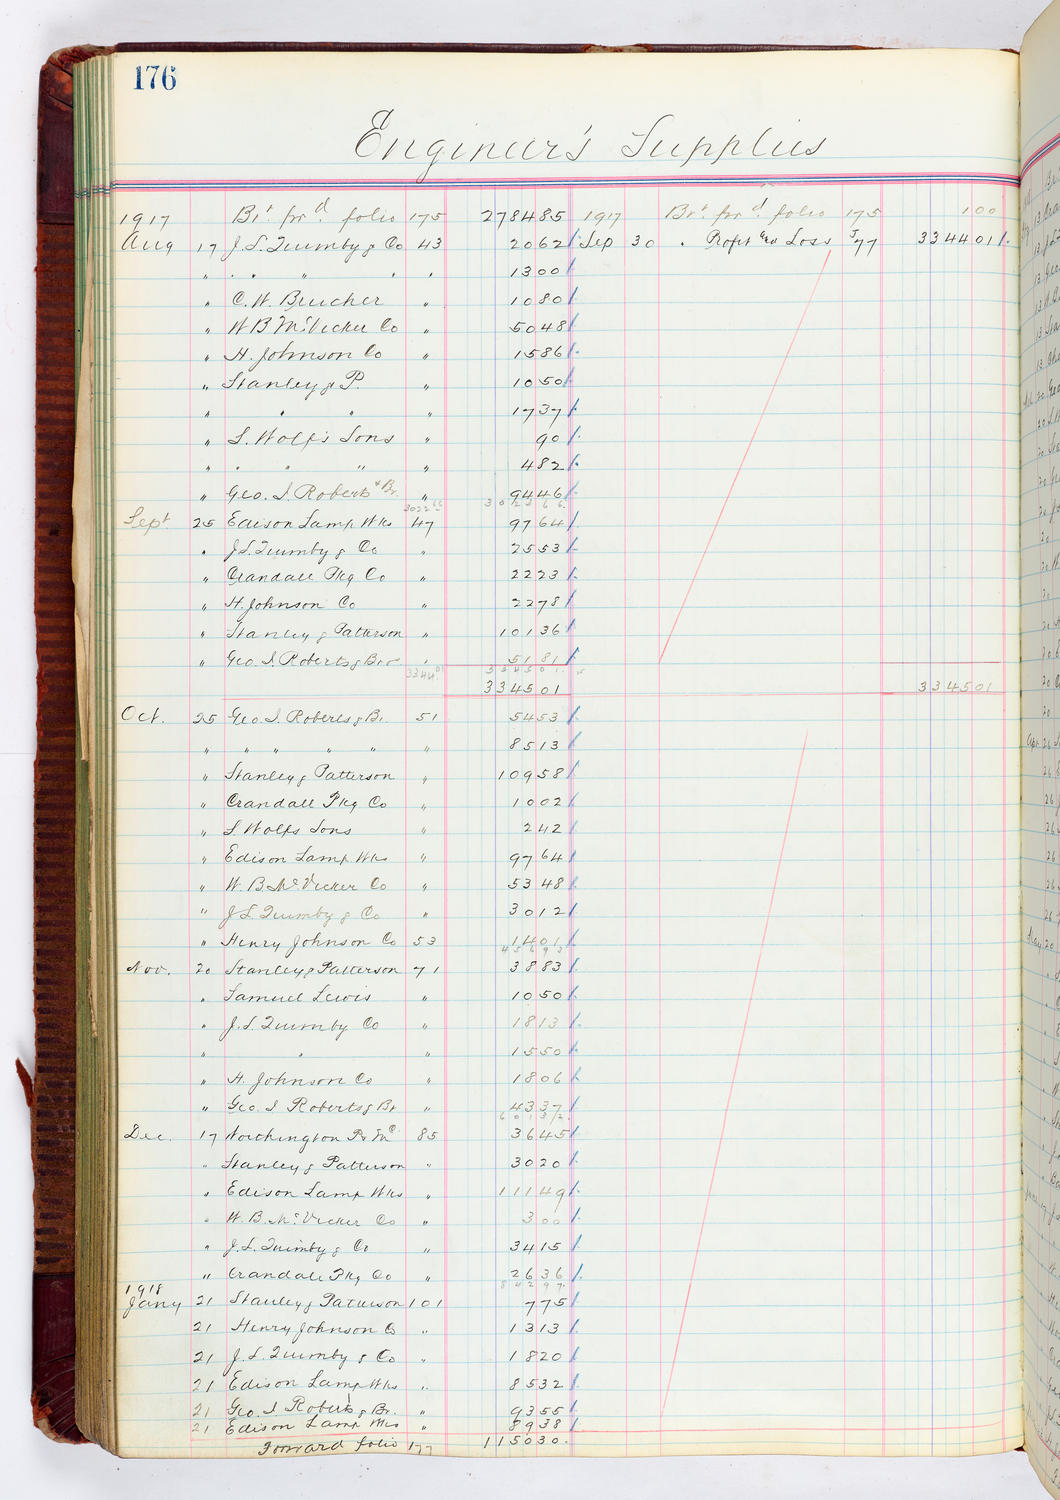 176
Engineer's Supplies
1917 Br't for'd folio 175 278485 1917 Br't for'd folio 175 100
Aug 17 J. L. Quimby & Co 43 2062 Sep 30 Profit and Loss J77 334401
" " " " " 1300
" C. W. Beucher " 1080
" W B McVicker Co " 5048
" H. Johnson Co " 1586
" Stanley & P. " 1050
" " " " 1737
" L. Wolf's Sons " 90
" " " " " 482
" Geo. I. Roberts & Br. " 9446
302366
Sept 25 Edison Lamp Wks 47 9764
" J. L. Quimby & Co " 2553
" Crandall Pkg Co " 2223
" H. Johnson Co " 2278
" Stanley & Patterson " 10136
" Geo. I. Roberts & Bro " 5181
334501
334501 334501
Oct. 25 Geo. I. Roberts & Br. 51 5453
" " " " " " 8513
" Stanley & Patterson " 10958
" Crandall Pkg Co " 1002
" L. Wolfs Sons " 242
" Edison Lamp Wks " 9764
" W. B. McVicker Co " 5348
" J. L. Quimby & Co " 3012
" Henry Johnson Co 53 1401
45693
Nov. 20 Stanley & Patterson 71 3883
" Samuel Lewis " 1050
" J. L. Quimby Co " 1813
" " " 1550
" H. Johnson Co " 1806
" Geo. I Roberts & Br " 4337
60132
Dec. 17 Worthington P & Mc 85 3645
" Stanley & Patterson " 3020
" Edison Lamp Wks " 11149
" W. B. McVicker Co " 300
" J. L. Quimby & Co " 3415
" Crandall Pkg Co " 2636
84297
1918
Jany 21 Stanley & Patterson 101 775
21 Henry Johnson Co " 1313
21 J. L. Quimby & Co " 1820
21 Edison Lamp Wks " 8532
21 Geo. I Roberts & Br. " 9355
21 Edison Lamp Wks " 8938
Forward folio 177 115030